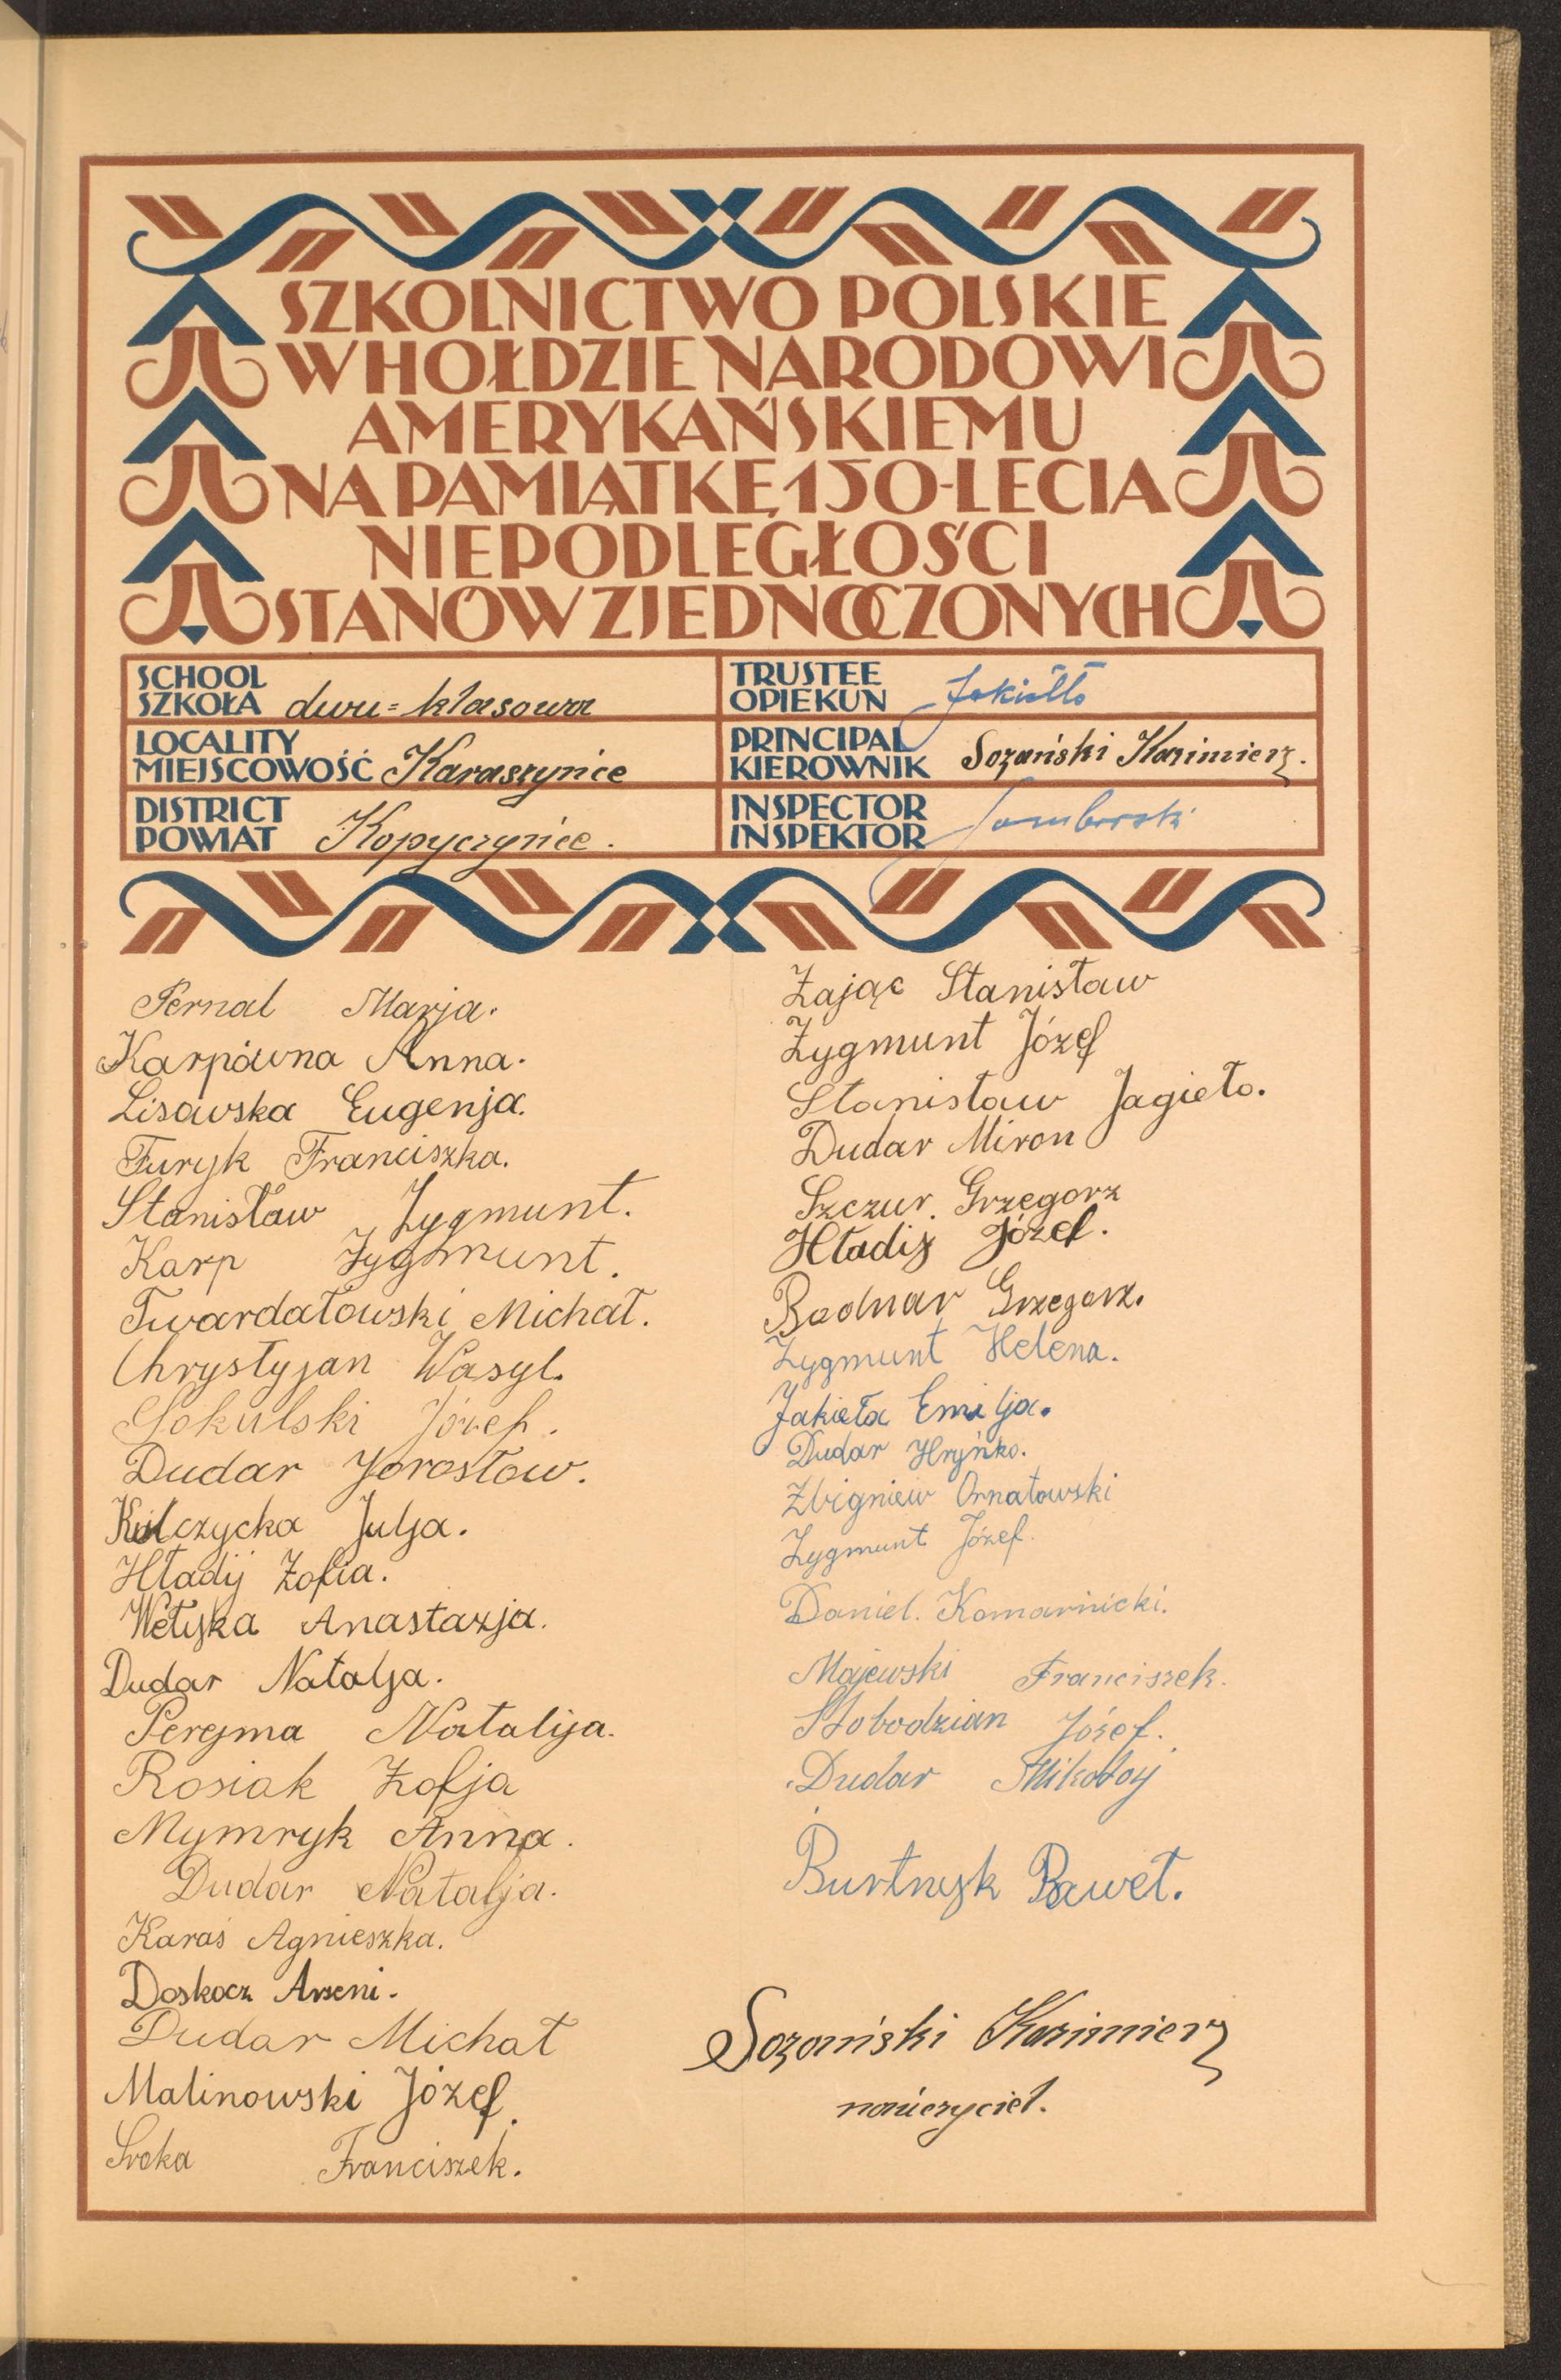 SZKOLNICTWO POLSKIE
W HOŁDZIE NARODOWI
AMERYKAŃSKIEMU
NA PAMIĄTKĘ 150-LECIA
NIEPODLEGŁOŚCI
STANÓW ZJEDNOCZONYCH
SCHOOL
SZKOŁA dwu=klasowa
LOCALITY
MIEJSCOWOŚĆ Karaszyńce
DISTRICT
POWIAT Kopyczyńce.
TRUSTEE
OPIEKUN Jakiełło
PRINCIPAL
KIEROWNIK Sozański Kazimierz.
INSPECTOR
INSPEKTOR Samborski
Pernal Marja.
Karpówna Anna.
Lisowska Eugenja.
Furyk Franciszka.
Stanisław Zygmunt.
Karp Zygmunt.
Twardałowski Michał.
Chrystyjan Wasyl.
Sokulski Józef.
Dudar Jorosław.
Kulczycka Julja.
Hładij Zofia.
Wełyka Anastazja.
Dudar Natalja.
Perejma Natalija.
Rosiak Zofja
Mymryk Anna.
Dudar Natalja.
Karaś Agnieszka.
Doskocz Arseni.
Dudar Michał
Malinowski Józef.
Sroka Franciszek.
Zając Stanisław
Zygmunt Józef
Stanisław Jagieło.
Dudar Miron
Szczur. Grzegorz
Hładij Józef.
Bodnar Grzegorz.
Zygmunt Helena.
Jakieła Emilja.
Dudar Hryńko.
Zbigniew Ornatowski
Zygmunt Józef.
Daniel. Komarnicki.
Majewski Franciszek.
Słobodzian Józef.
Dudar Mikołaj
Burtnyk Paweł.
Sozański Kazimierz
nauczyciel.